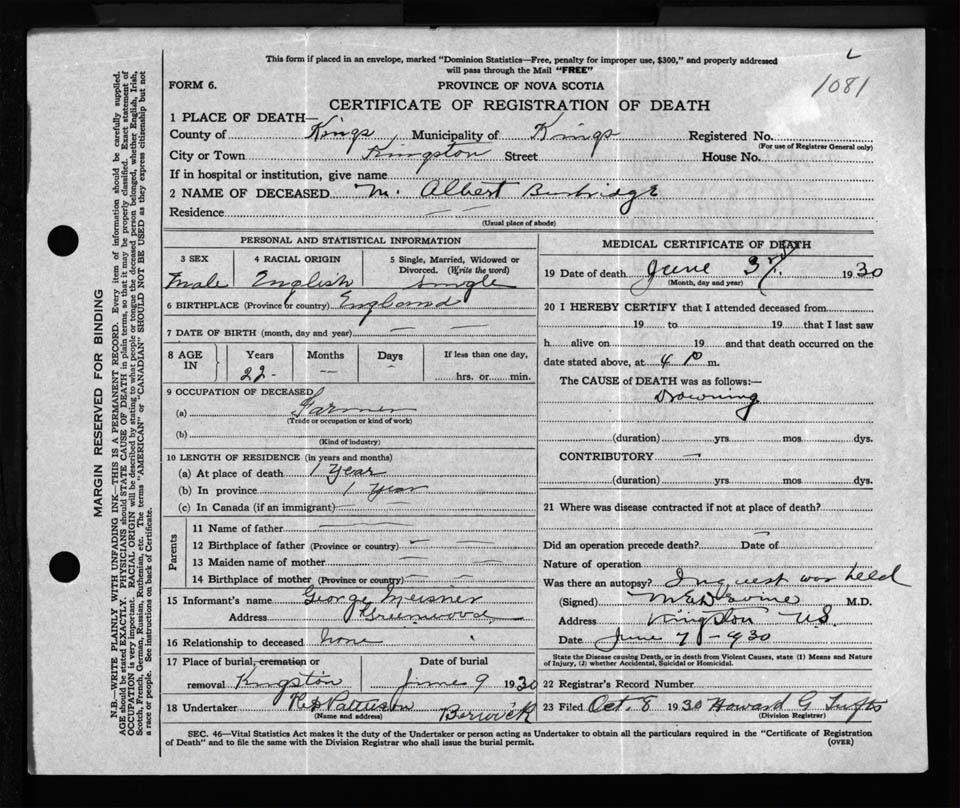 This form if placed in an envelope, marked "Dominion Statistics—Free, penalty for improper use, $300," and properly addressed
will pass through the Mail "FREE"
1081
FORM 6.
PROVINCE OF NOVA SCOTIA
CERTIFICATE OF REGISTRATION OF DEATH
1 PLACE OF DEATH—
County of Kings, Municipality of Kings Registered No.
(For use of Registrar General only)
City or Town Kingston Street House No.
If in hospital or institution, give name
2 NAME OF DECEASED M. Albert Burbridge
Residence — —
(Usual place of abode)
MARGIN RESERVED FOR BINDING
N.B.—WRITE PLAINLY WITH UNFADING INK—THIS IS A PERMANENT RECORD. Every item of information should be carefully supplied.
AGE should be stated EXACTLY. PHYSICIANS should STATE CAUSE OF DEATH in plain terms, so that it may be properly classified. Exact statement of
OCCUPATION is very important. RACIAL ORIGIN will be described by stating to what people or tongue the deceased person belonged, whether English, Irish,
Scotch, French, German, Russian, Ruthenian, etc. The terms "AMERICAN" or "CANADIAN" SHOULD NOT BE USED as they express citizenship but not
a race or people. See instructions on back of Certificate.
PERSONAL AND STATISTICAL INFORMATION
3 SEX 4 RACIAL ORIGIN 5 Single, Married, Widowed or
Divorced. (Write the word)
Male English Single
6 BIRTHPLACE (Province or country) England
7 DATE OF BIRTH (month, day and year) — —
8 AGE IN Years Months Days If less than one day,
22 - — — hrs. or min.
9 OCCUPATION OF DECEASED
(a) Farmer
(Trade or occupation or kind of work)
(b)
(Kind of industry)
10 LENGTH OF RESIDENCE (in years and months)
(a) At place of death 1 Year
(b) In province 1 Year
(c) In Canada (if an immigrant) —
Parents
11 Name of father —
12 Birthplace of father (Province or country) — —
13 Maiden name of mother — —
14 Birthplace of mother (Province or country) — —
15 Informant's name George Meisner
Address Greenwood
16 Relationship to deceased none
17 Place of burial, cremation or Date of burial
removal Kingston June 9 1930
18 Undertaker Pattison Berwick
(Name and address)
MEDICAL CERTIFICATE OF DEATH
19 Date of death June 3rd 1930
(Month, day and year)
20 I HEREBY CERTIFY that I attended deceased from
19 to 19 that I last saw
h alive on 19 and that death occurred on the
date stated above, at 4 P m.
The CAUSE of DEATH was as follows:—
Drowning
(duration) yrs. mos. dys.
CONTRIBUTORY —
(duration) yrs. mos. dys.
21 Where was disease contracted if not at place of death?
Did an operation precede death? — Date of
Nature of operation
Was there an autopsy? Inquest was held
(Signed) M.D.
Address Kingston
Date June 7 - 930
State the Disease causing Death, or in death from Violent Causes, state (1) Means and Nature
of Injury, (2) whether Accidental, Suicidal or Homicidal.
22 Registrar's Record Number
23 Filed Oct. 8 1930 Howard G Tufts
(Division Registrar)
SEC. 46—Vital Statistics Act makes it the duty of the Undertaker or person acting as Undertaker to obtain all the particulars required in the "Certificate of Registration
of Death" and to file the same with the Division Registrar who shall issue the burial permit.
(OVER)